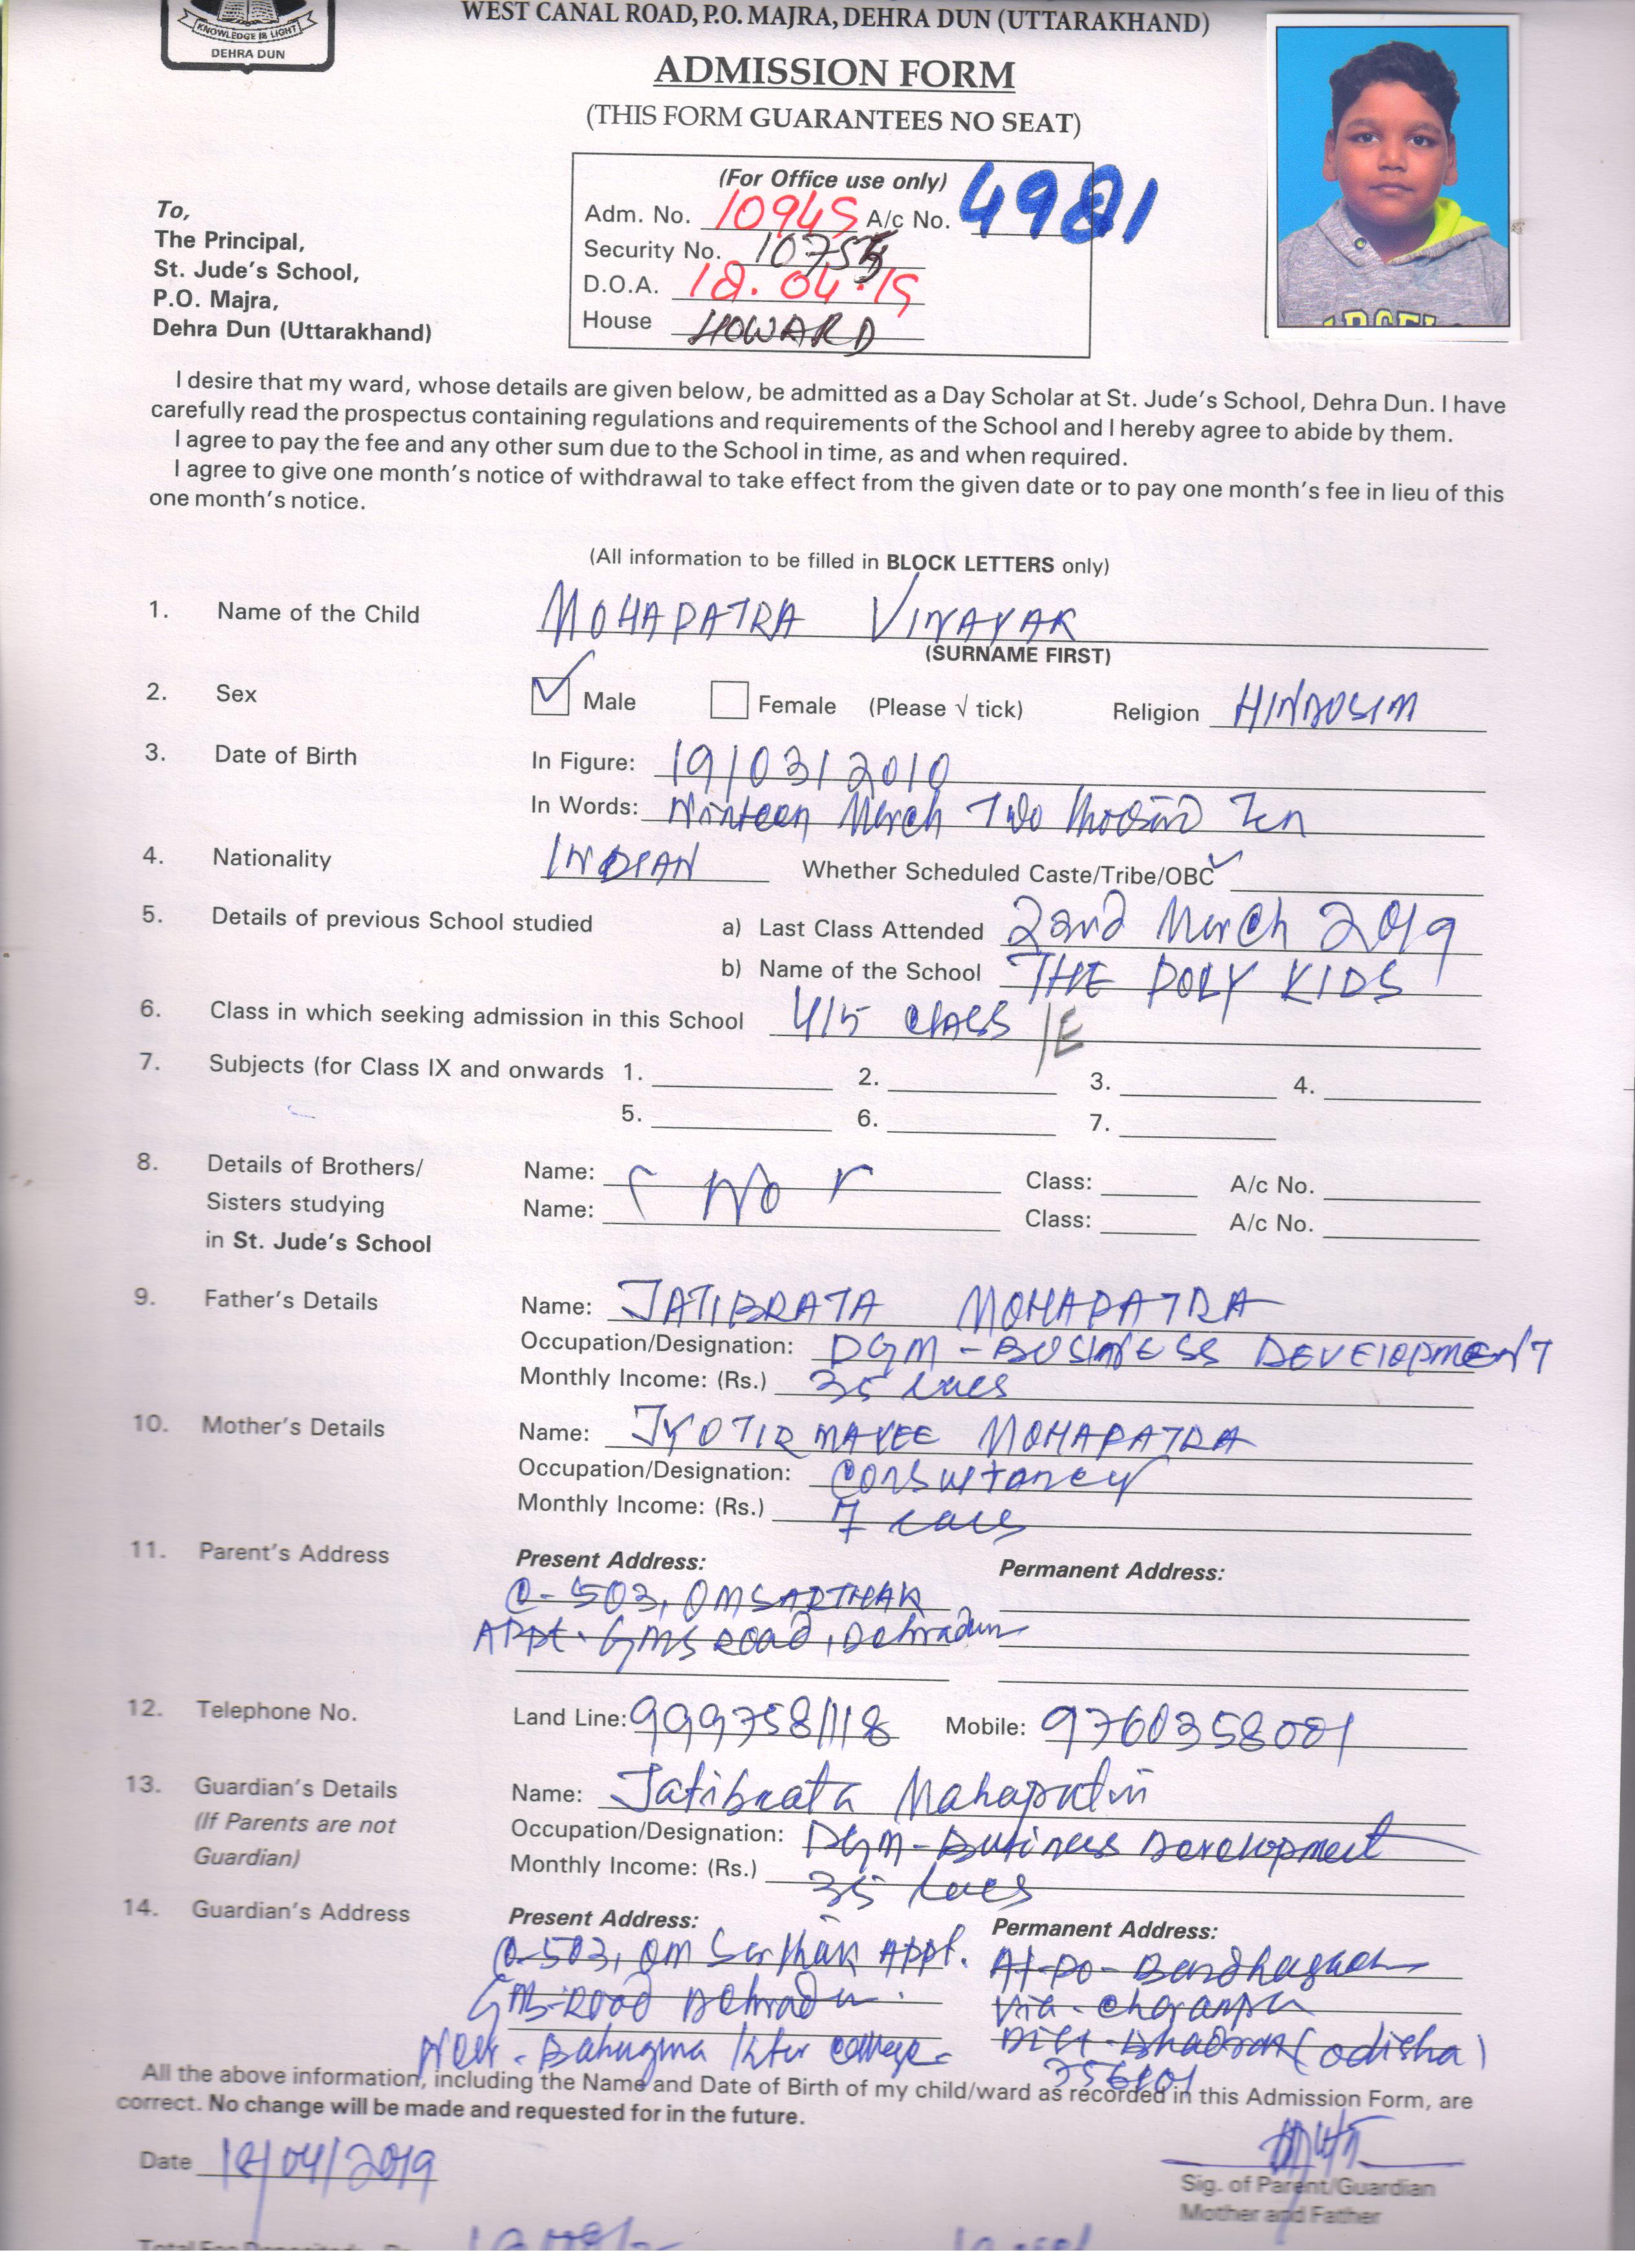 KNOWLEDGE IS LIGHT
DEHRA DUN
WEST CANAL ROAD, P.O. MAJRA, DEHRA DUN (UTTARAKHAND)
ADMISSION FORM
(THIS FORM GUARANTEES NO SEAT)
(For Office use only)
Adm. No. 10945 A/c No. 4981
Security No.
D.O.A. 18.04.19
House HOWARD
To,
The Principal,
St. Jude's School,
P.O. Majra,
Dehra Dun (Uttarakhand)
I desire that my ward, whose details are given below, be admitted as a Day Scholar at St. Jude's School, Dehra Dun. I have
carefully read the prospectus containing regulations and requirements of the School and I hereby agree to abide by them.
I agree to pay the fee and any other sum due to the School in time, as and when required.
I agree to give one month's notice of withdrawal to take effect from the given date or to pay one month's fee in lieu of this
one month's notice.
(All information to be filled in BLOCK LETTERS only)
1. Name of the Child MOHAPATRA VINAYAK
(SURNAME FIRST)
2. Sex Male Female (Please √ tick) Religion HINDUSIM
3. Date of Birth In Figure: 19/03/2010
In Words: Ninteen March Two Ten
4. Nationality INDIAN Whether Scheduled Caste/Tribe/OBC
5. Details of previous School studied a) Last Class Attended 22nd March 2019
b) Name of the School THE POLY KIDS
6. Class in which seeking admission in this School 4/5 CLASS /E
7. Subjects (for Class IX and onwards 1. 2. 3. 4.
5. 6. 7.
8. Details of Brothers/ Name: No Class: A/c No.
Sisters studying Name: Class: A/c No.
in St. Jude's School
9. Father's Details Name: JATIBRATA MOHAPATRA
Occupation/Designation: DGM - BUSINESS DEVELOPMENT
Monthly Income: (Rs.) 35 Lacs
10. Mother's Details Name: JYOTIRMAYEE MOHAPATRA
Occupation/Designation: Consultancy
Monthly Income: (Rs.) 7 Lacs
11. Parent's Address Present Address: Permanent Address:
C-503, OM SARTHAK
APPt. GMS ROAD, Dehradun
12. Telephone No. Land Line: 9997581118 Mobile: 9760358001
13. Guardian's Details Name: Jatibrata Mahapatra
(If Parents are not Occupation/Designation: DGM-Business Development
Guardian) Monthly Income: (Rs.) 35 Lacs
14. Guardian's Address Present Address: Permanent Address:
C-503, OM Sarthak APPt. At-po-
GMS-Road Dehradun. Via-
Near - Bahuguna Inter College Dist-Bhadrak (odisha)
All the above information, including the Name and Date of Birth of my child/ward as recorded in this Admission Form, are
correct. No change will be made and requested for in the future.
Date 18/04/2019
Sig. of Parent/Guardian
Mother and Father